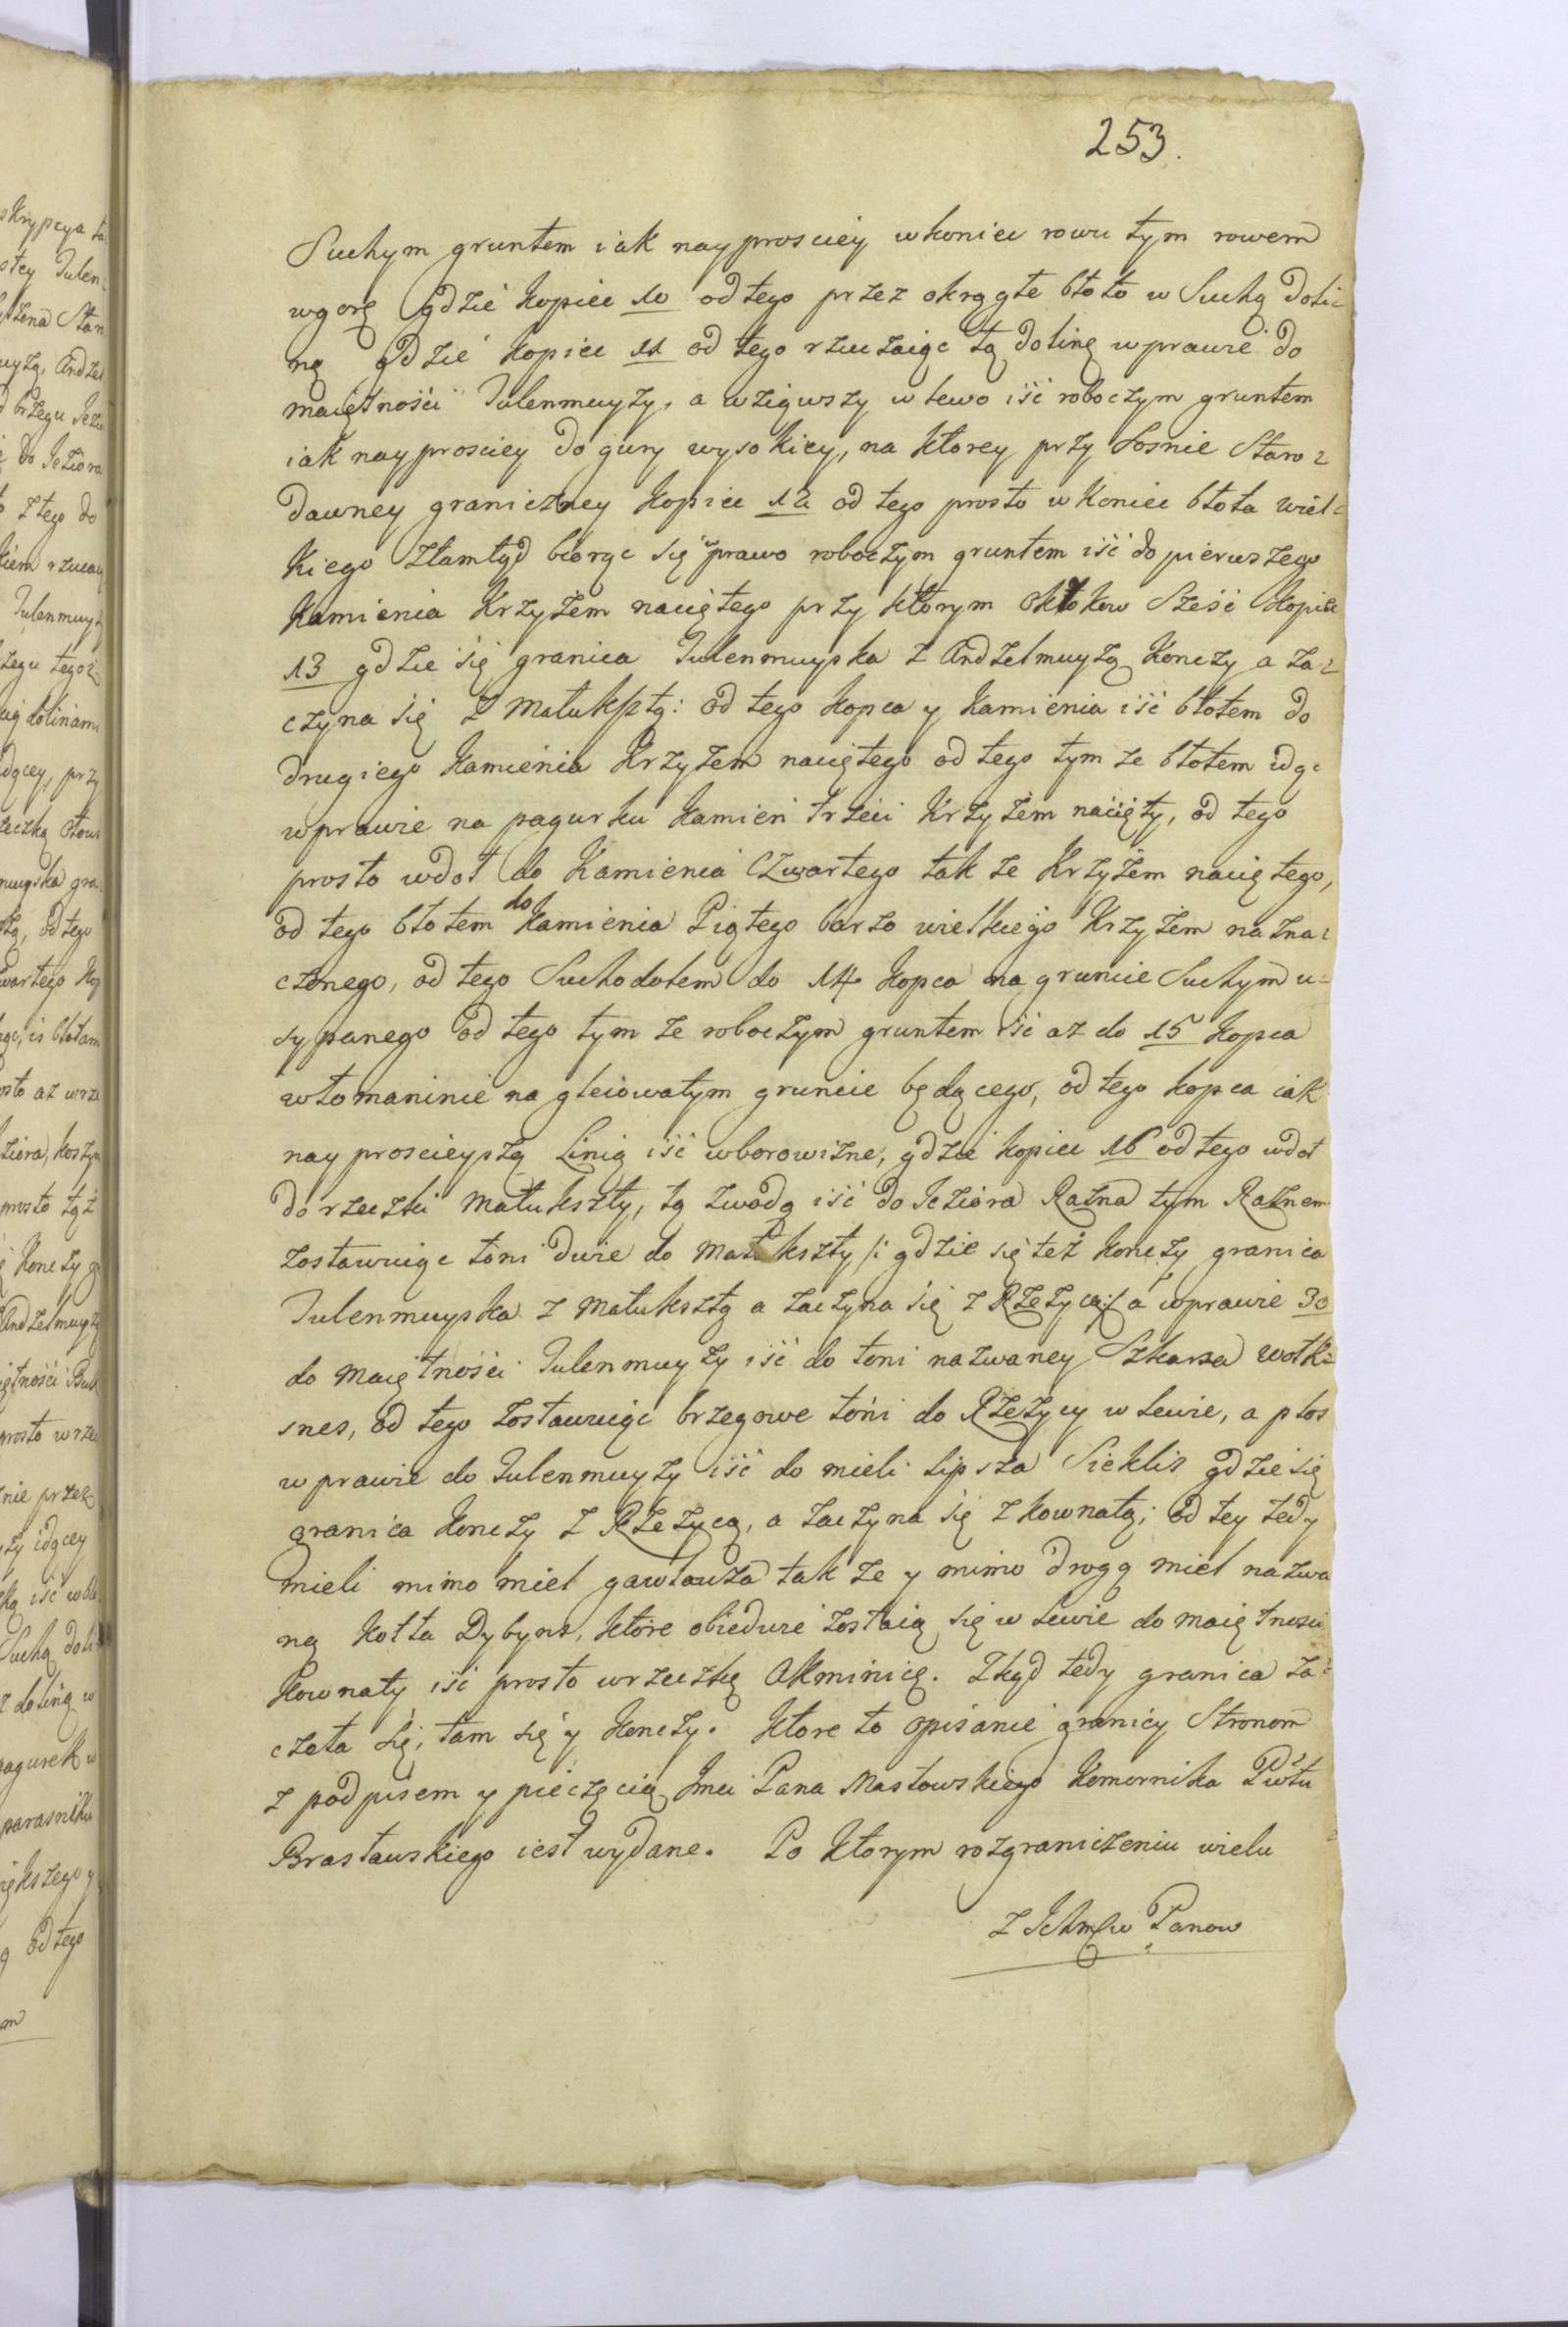 253.
Suchym gruntem iak nayprosciey w koniec rowu tym rowem
w gorę gdzie kopiec 10 od tego przez okrągłe błoto w Suchą doli=
nę gdzie kopiec 11 od tego rzucaiąc tą dolinę w prawie do
maiętności Julenmuyży, a wziąwszy w lewo iść roboczym gruntem
iak nayprosciey do gury wysokiey, na ktorey przy Sosnie Staro=
dawney graniczney kopiec 12 od tego prosto w koniec błota wiel=
kiego ztamtąd biorąc się w prawo roboczym gruntem iść do pierwszego
kamienia krzyżem naciętego przy ktorym okłokow Sześć kopiec
13 gdzie się granica Julenmuyska z Andzelmuyżą kończy a za=
czyna się z Matuksztą: od tego kopca y kamienia iść błotem do
drugiego kamienia krzyżem naciętego od tego tym że błotem idąc
w prawie na pagurku kamień trzeci krzyżem nacięty, od tego
prosto w doł do kamienia czwartego tak że krzyżem naciętego,
od tego błotem do kamienia Piątego barzo wielkiego krzyżem nazna=
czonego, od tego Suchodołem do 14 kopca na gruncie Suchym u=
sypanego od tego tym że roboczym gruntem iść aż do 15 kopca
w łomaninie na gleiowatym gruncie będącego, od tego kopca iak
nayprościeyszą Linią iść w borowiznę, gdzie kopiec 16 od tego w doł
do rzeczki Matukszty, tą z wodą iść do Jeziora Raźna tym Raźnem
zostawuiąc toni dwie do Matukszty /: gdzie się też kończy granica
Julenmuyska z Matuksztą a zaczyna się z Rzeżycą :/ a w prawie 30
do maiętności Julenmuyży iść do toni nazwaney Szkarza wołki
snes, od tego zostawuiąc brzegowe tońi do Rzeżycy w lewie, a płos
w prawie do Julenmuyży iść do mieli Lipsza Sieklis gdzie się
granica kończy z Rzeżycą, a zaczyna się z Kownatą; od tey tedy
mieli mimo miel gawlauża tak że y mimo drogą miel nazwa
ną Kołta Dybyns, które obiedwie zostaią się w lewie do maiętnosci
Kownaty iść prosto w rzeczkę Akminicę. Zkąd tedy granica za=
częta się, tam się y kończy. Ktore to opisanie granicy Stronom
z podpisem y pieczęcią Jmci Pana Masłowskiego Komornika Pwtu
Brasławskiego iest wydane. Po ktorym rozgraniczeniu wielu
z Ichmciw Panow